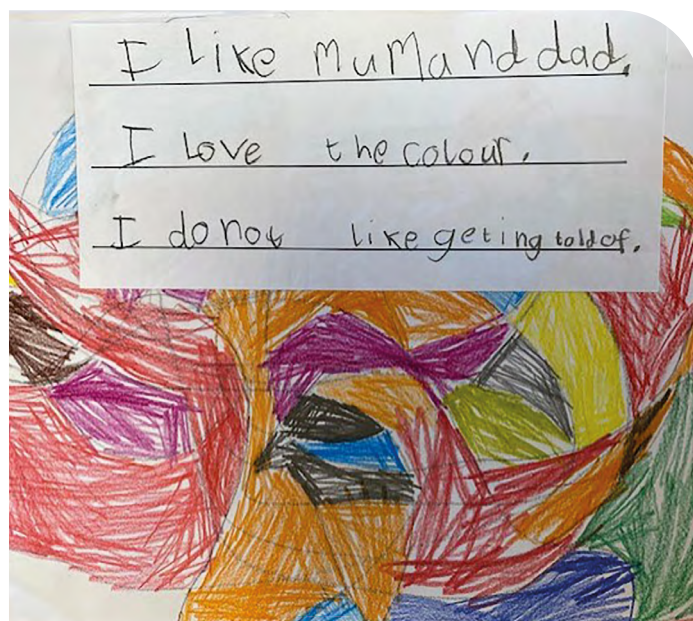 I like mum and dad.
I love the colour.
I do not like geting told of.